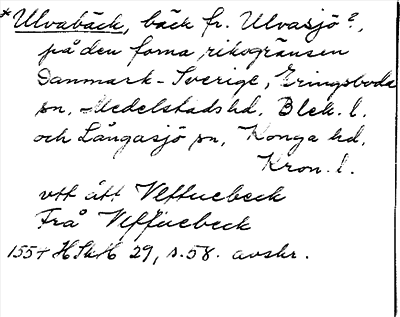 *Ulvabäck, bäck fr. Ulvasjö?,
på den forna riksgränsen
Danmark-Sverige, Eringsboda
sn, Medelstads hd, Blek. l.
och Långasjö sn, Konga hd,
Kron. l.
vtt ått Vlffuebeck
Frå Vlffuebeck
1554 HSkH 29, s. 58. avskr.